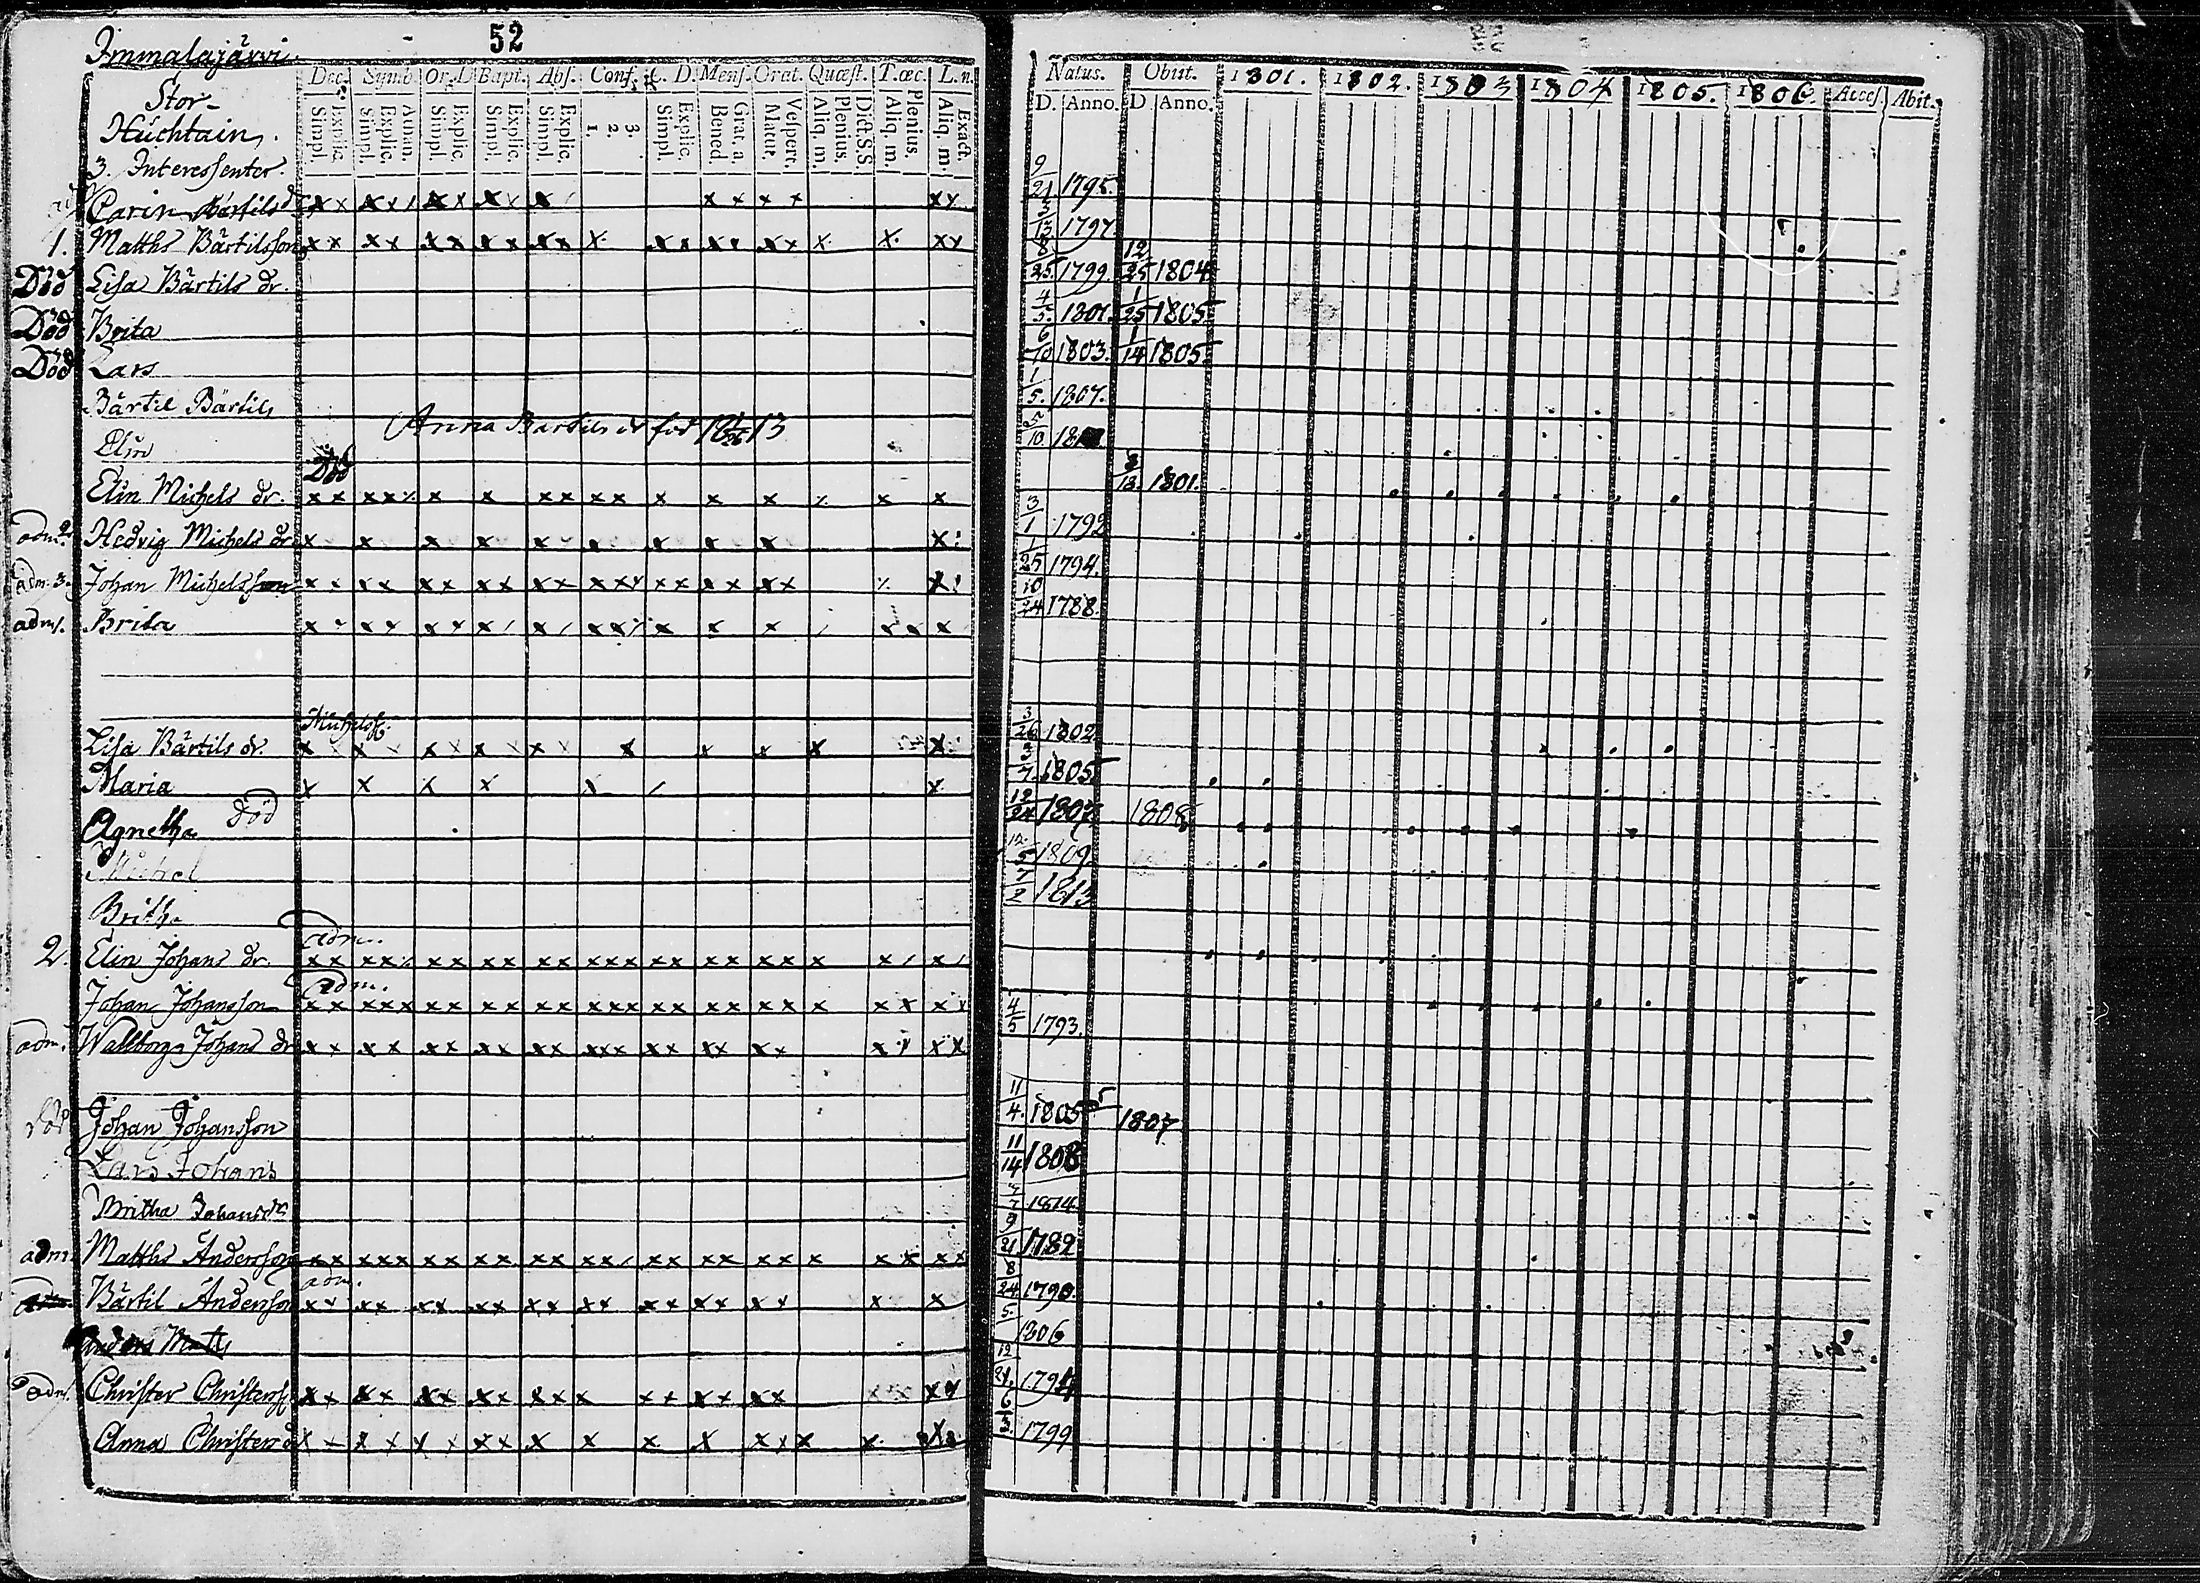 52
Immalajärvi.
Dec. Symb. Or. D. Bapt. Abs. Conf. C. D. Mens. Orat. Quæst. T. œc. L. n.
Simpl. Explic. Simpl. Explic. Athan. Simpl. Explic. Simpl. Explic. Simpl. Explic. 1. 2. 3. Simpl. Explic. Bened. Grat. a. Matut. Vespert. Aliq. m. Plenius. Dict. S.S. Aliq. m. Plenius. Aliq. m. Exact.
Natus. Obiit. 1801. 1802. 1803 1804 1805. 1806. Access. Abit.
D. Anno. D. Anno.
Stor-
Huchtain.
3. Interessenter.
Carin Bärtils d. 9/21 1795.
1. Matths Bärtilsson 3/13 1797.
Död Lisa Bärtils dr. 8/25. 1799. 12/25 1804
Död Brita 4/5. 1801. 1/25 1805
Död Lars 6/10 1803. 1/14 1805
Bärtil Bärtils 1/5. 1807.
Anna Bärtils dr född 13
Elin 5/10
Död
Elin Michels dr. 3/13. 1801.
adm. 2. Hedvig Michels dr. 3/1 1792
adm. 3. Johan Michelsson 1/25 1794.
adm. Brita 10/24 1788.
Michelsf.
Lisa Bärtils dr. 3/26 1802
Maria 3/7. 1805
Agnetha död 12/24 1807 1808
Michel 12/5 1809
Britha 7/2 1813
adm.
2. Elin Johans dr.
adm.
Johan Johansson
adm. Wallborg Johans dr 4/5 1793.
död Johan Johansson 11/4. 1805 1807
Lars Johans 11/14 1808
Britha Johansdr 7 1814
adm. Matths Andersson 9/21 1782
adm.
Bärtil Andersson 8/24 1790.
Anders Matts 5 1806
adm. Christer Christersf. 12/21. 1794
Anna Christersd 6/3. 1799